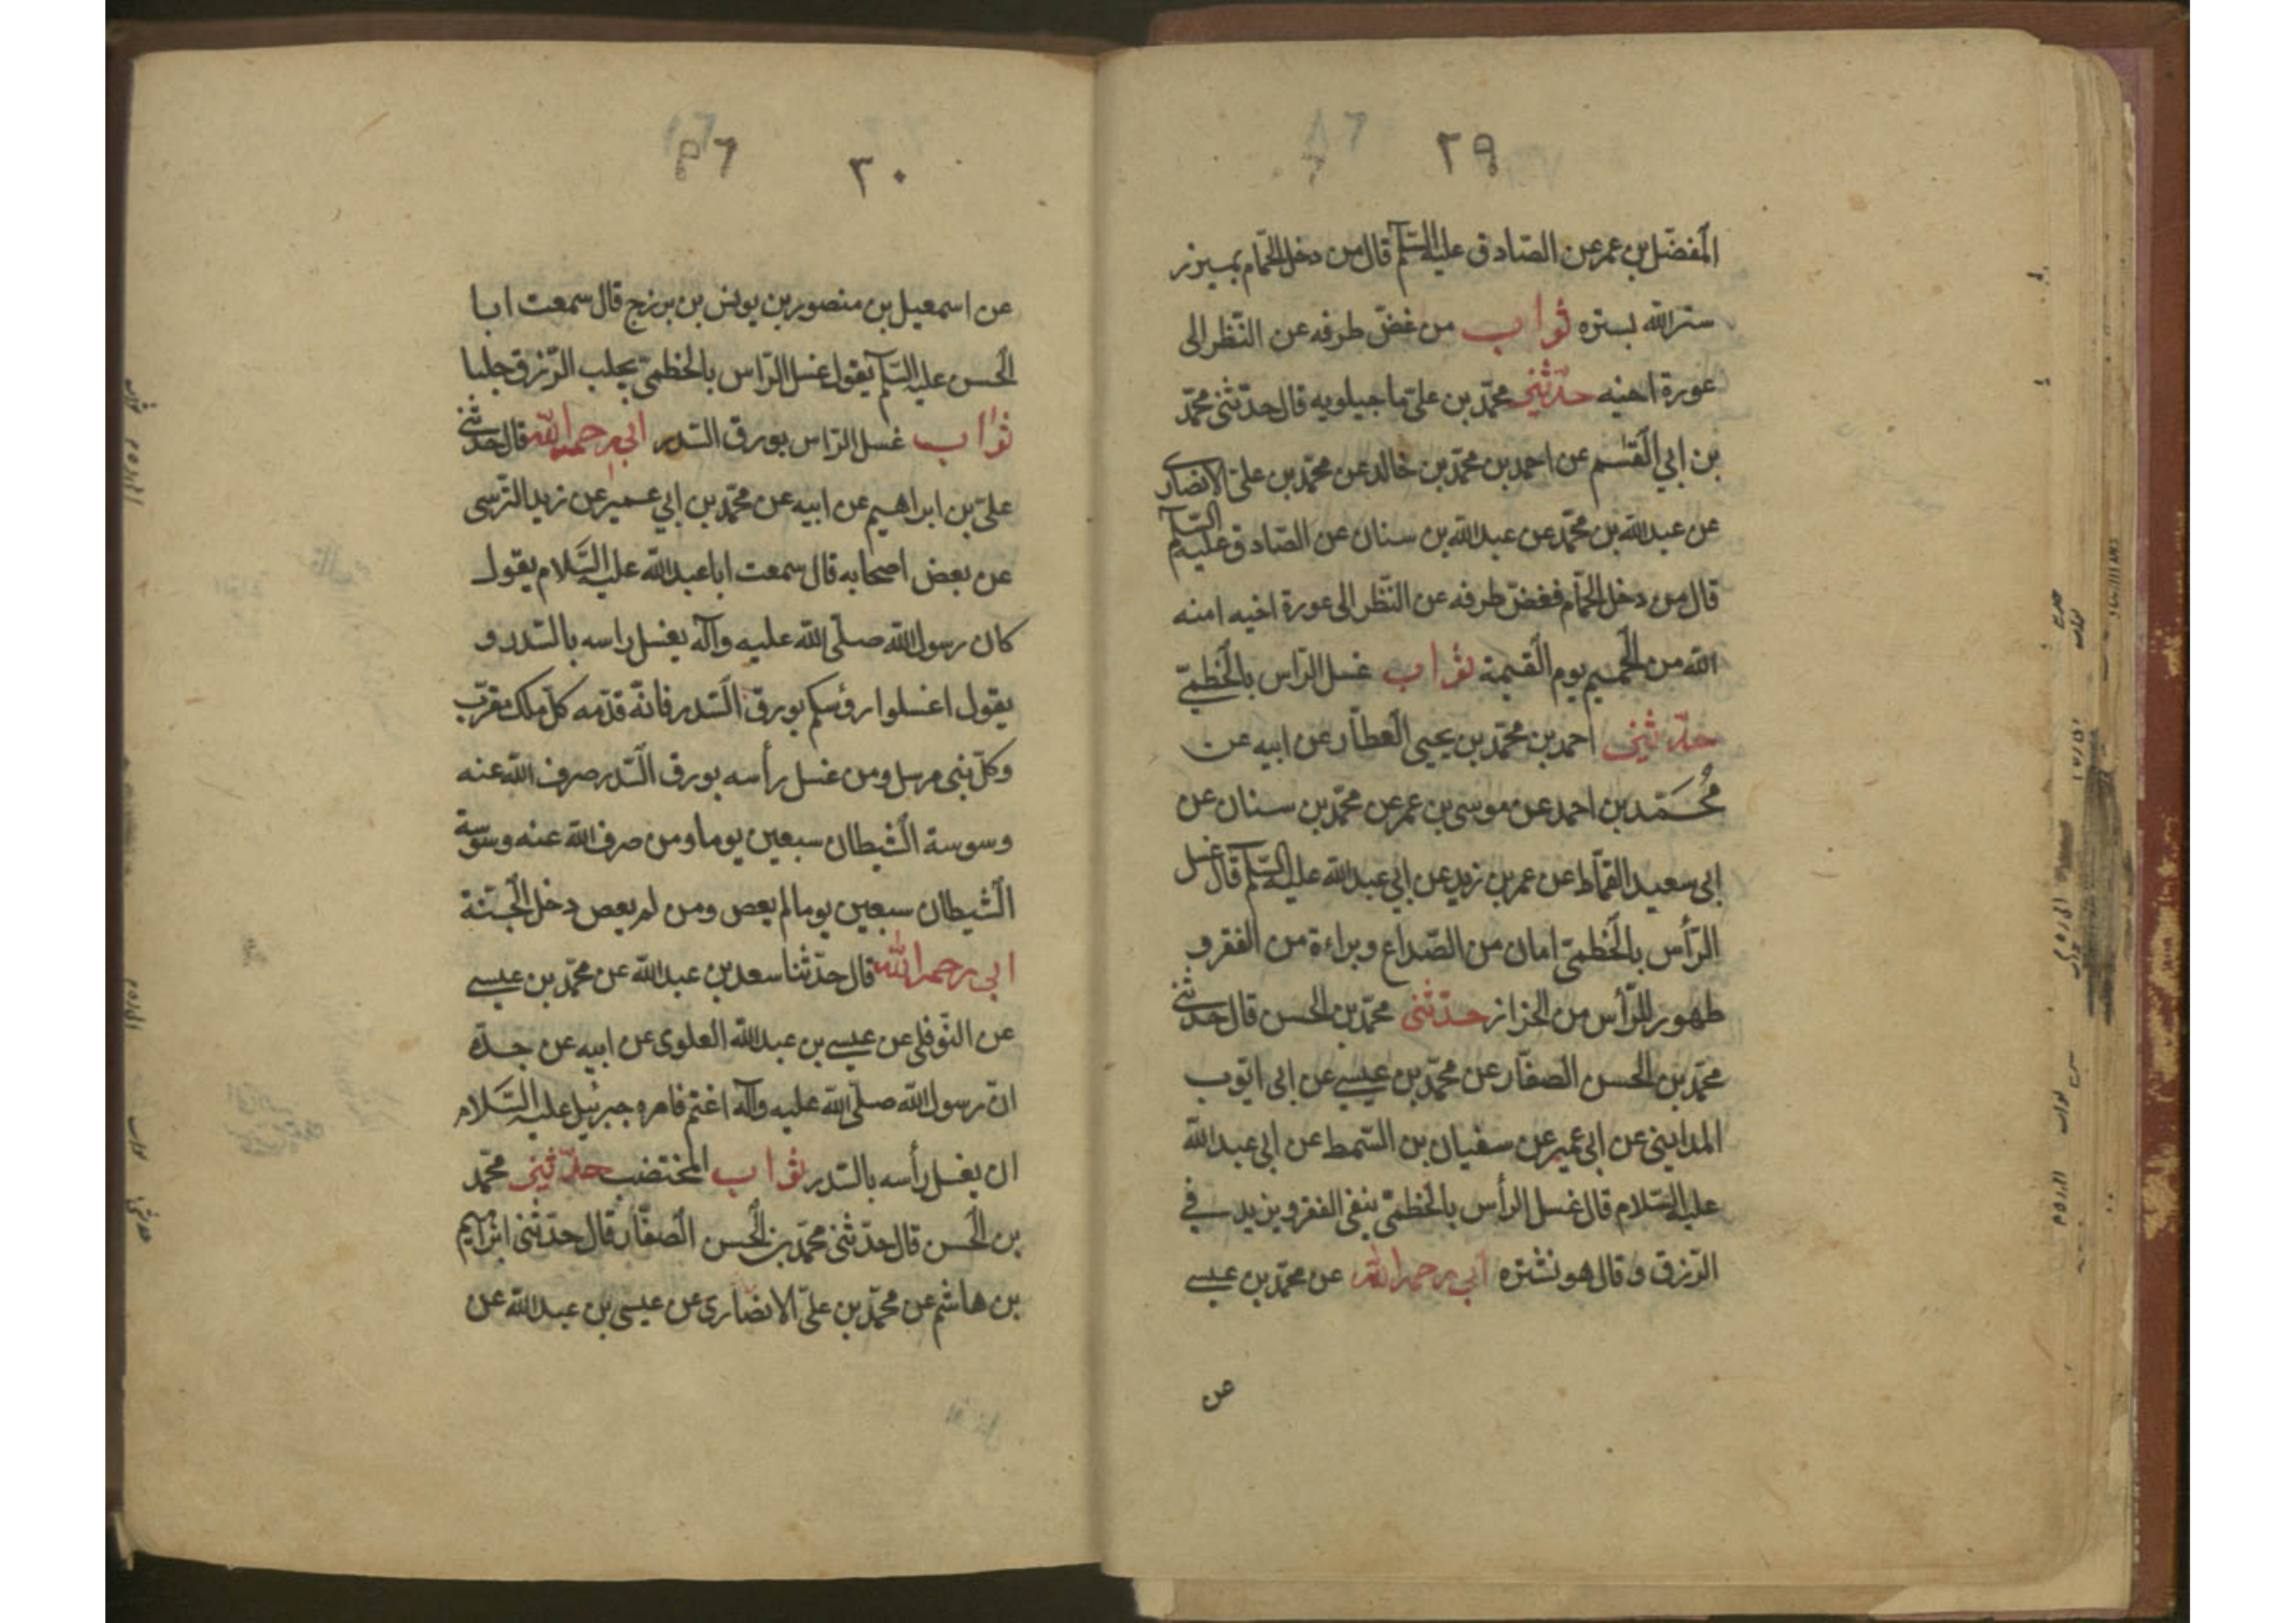 ٢٩
المفضّل بن عمر عن الصّادق عليه السّلم قال من دخل الحمّام بميزر
ستر الله بستره ثواب من غضّ طرفه عن النّظر الى
عورة اخيه حدّثني محمّد بن علىّ ماجيلويه قال حدّثنى محمّد
بن ابي القٰسم عن احمد بن محمّد بن خالد عن محمّد بن علىّ الانصارى
عن عبد الله بن محمّد عن عبد الله بن سنان عن الصّادق عليه السّلم
قال من دخل الحمّام فغضّ طرفه عن النّظر الى عورة اخيه امنه
الله من الحميم يوم القيمة ثواب غسل الرّاس بالخطمىّ
حدّثنى احمد بن محمّد بن يحيى العطّار عن ابيه عن
مُحَمّد بن احمد عن موسى بن عمر عن محمّد بن سنان عن
ابى سعيد القمّاط عن عمر بن زيد عن ابي عبد الله عليه السّلم قال غسل
الرّأس بالخطمىّ امان من الصّداع وبراءة من الفقر و
طهور للرّأس من الخزاز حدّثنى محمّد بن الحسن قال حدّثنى
محمّد بن الحسن الصفّار عن محمّد بن عيسى عن ابى ايّوب
المداينى عن ابى عمير عن سفيان بن السّمط عن ابى عبد الله
عليه السّلام قال غسل الرأس بالخطمىّ ينفى الفقر ويزيد في
الرّزق وقال هو نشره ابي رحمه الله عن محمّد بن عيسى
عن
٣٠
٦٩
عن اسمعيل بن منصور بن يونس بن بزرج قال سمعت ابا
الحسن عليه السّلم يقول غسل الرّاس بالخطمىّ يجلب الرّزق جلبا
ثواب غسل الرّاس بورق السّدر ابي رحمه الله قال حدّثنى
علىّ بن ابراهيم عن ابيه عن محمّد بن ابي عمير عن زيد النّرسى
عن بعض اصحابه قال سمعت ابا عبد الله عليه السّلام يقول
كان رسول الله صلّى الله عليه وآله يغسل راسه بالسّدر و
يقول اغسلوا رؤسكم بورق السّدر فانّه قدّمه كلّ ملك مقرّب
وكلّ نبى مرسل ومن غسل رأسه بورق السّدر صرف الله عنه
وسوسة الشّيطان سبعين يوما ومن صرف الله عنه وسوسة
الشّيطان سبعين يوما لم يعص ومن لم يعص دخل الجنّة
ابى رحمه الله قال حدّثنا سعد بن عبد الله عن محمّد بن عيسى
عن النّوفلى عن عيسى بن عبد الله العلوى عن ابيه عن جدّه
انّ رسول الله صلّى الله عليه وآله اغتم فامره جبرئيل عليه السّلام
ان يغسل رأسه بالسّدر ثواب المختضب حدّثنى محمّد
بن الحسن قال حدّثنى محمّد بن الحسن الصفّار قال حدّثنى ابراهيم
بن هاشم عن محمّد بن علىّ الانصارى عن عيسى بن عبد الله عن